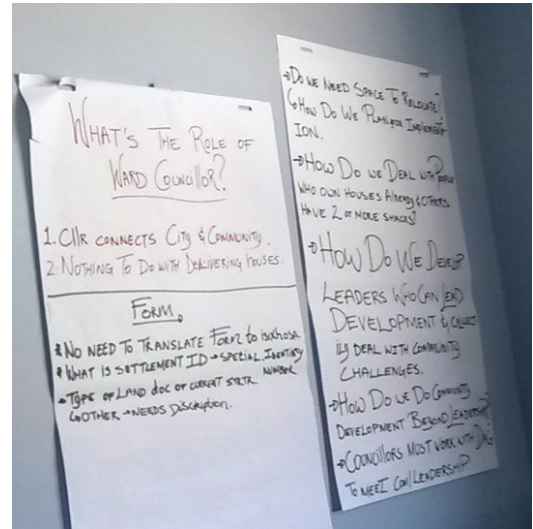 WHAT'S THE ROLE OF
WARD COUNCILLOR?
1. Cllr CONNECTS CITY & COMMUNITY.
2. NOTHING TO DO WITH DELIVERING HOUSES.
FORM
* NO NEED TO TRANSLATE FORM to isixhosa
* WHAT IS SETTLEMENT ID → SPECIAL IDENTITY
NUMBER
→ TYPE OF LAND DOC OF CURRENT STRTR.
↳ OTHER → NEEDS DISCRIPTION.
→ DO WE NEED SPACE TO RELOCATE?
↳ HOW DO WE PLAN FOR IMPLEMENT
ION.
→ HOW DO WE DEAL WITH PEOPLE
WHO OWN HOUSES ALREADY & OTHERS
HAVE 2 OR MORE SHACKS?
→ HOW DO WE DEVELOP
LEADERS WHO CAN LEAD
DEVELOPMENT & COLLECT
ily DEAL WITH COMMUNITY
CHALLENGES.
→ HOW DO WE DO COMMUNITY
DEVELOPMENT BEYOND LEADERSHIP?
→ COUNCILLORS MOST WORK WITH
TO MEET LEADERSHIP